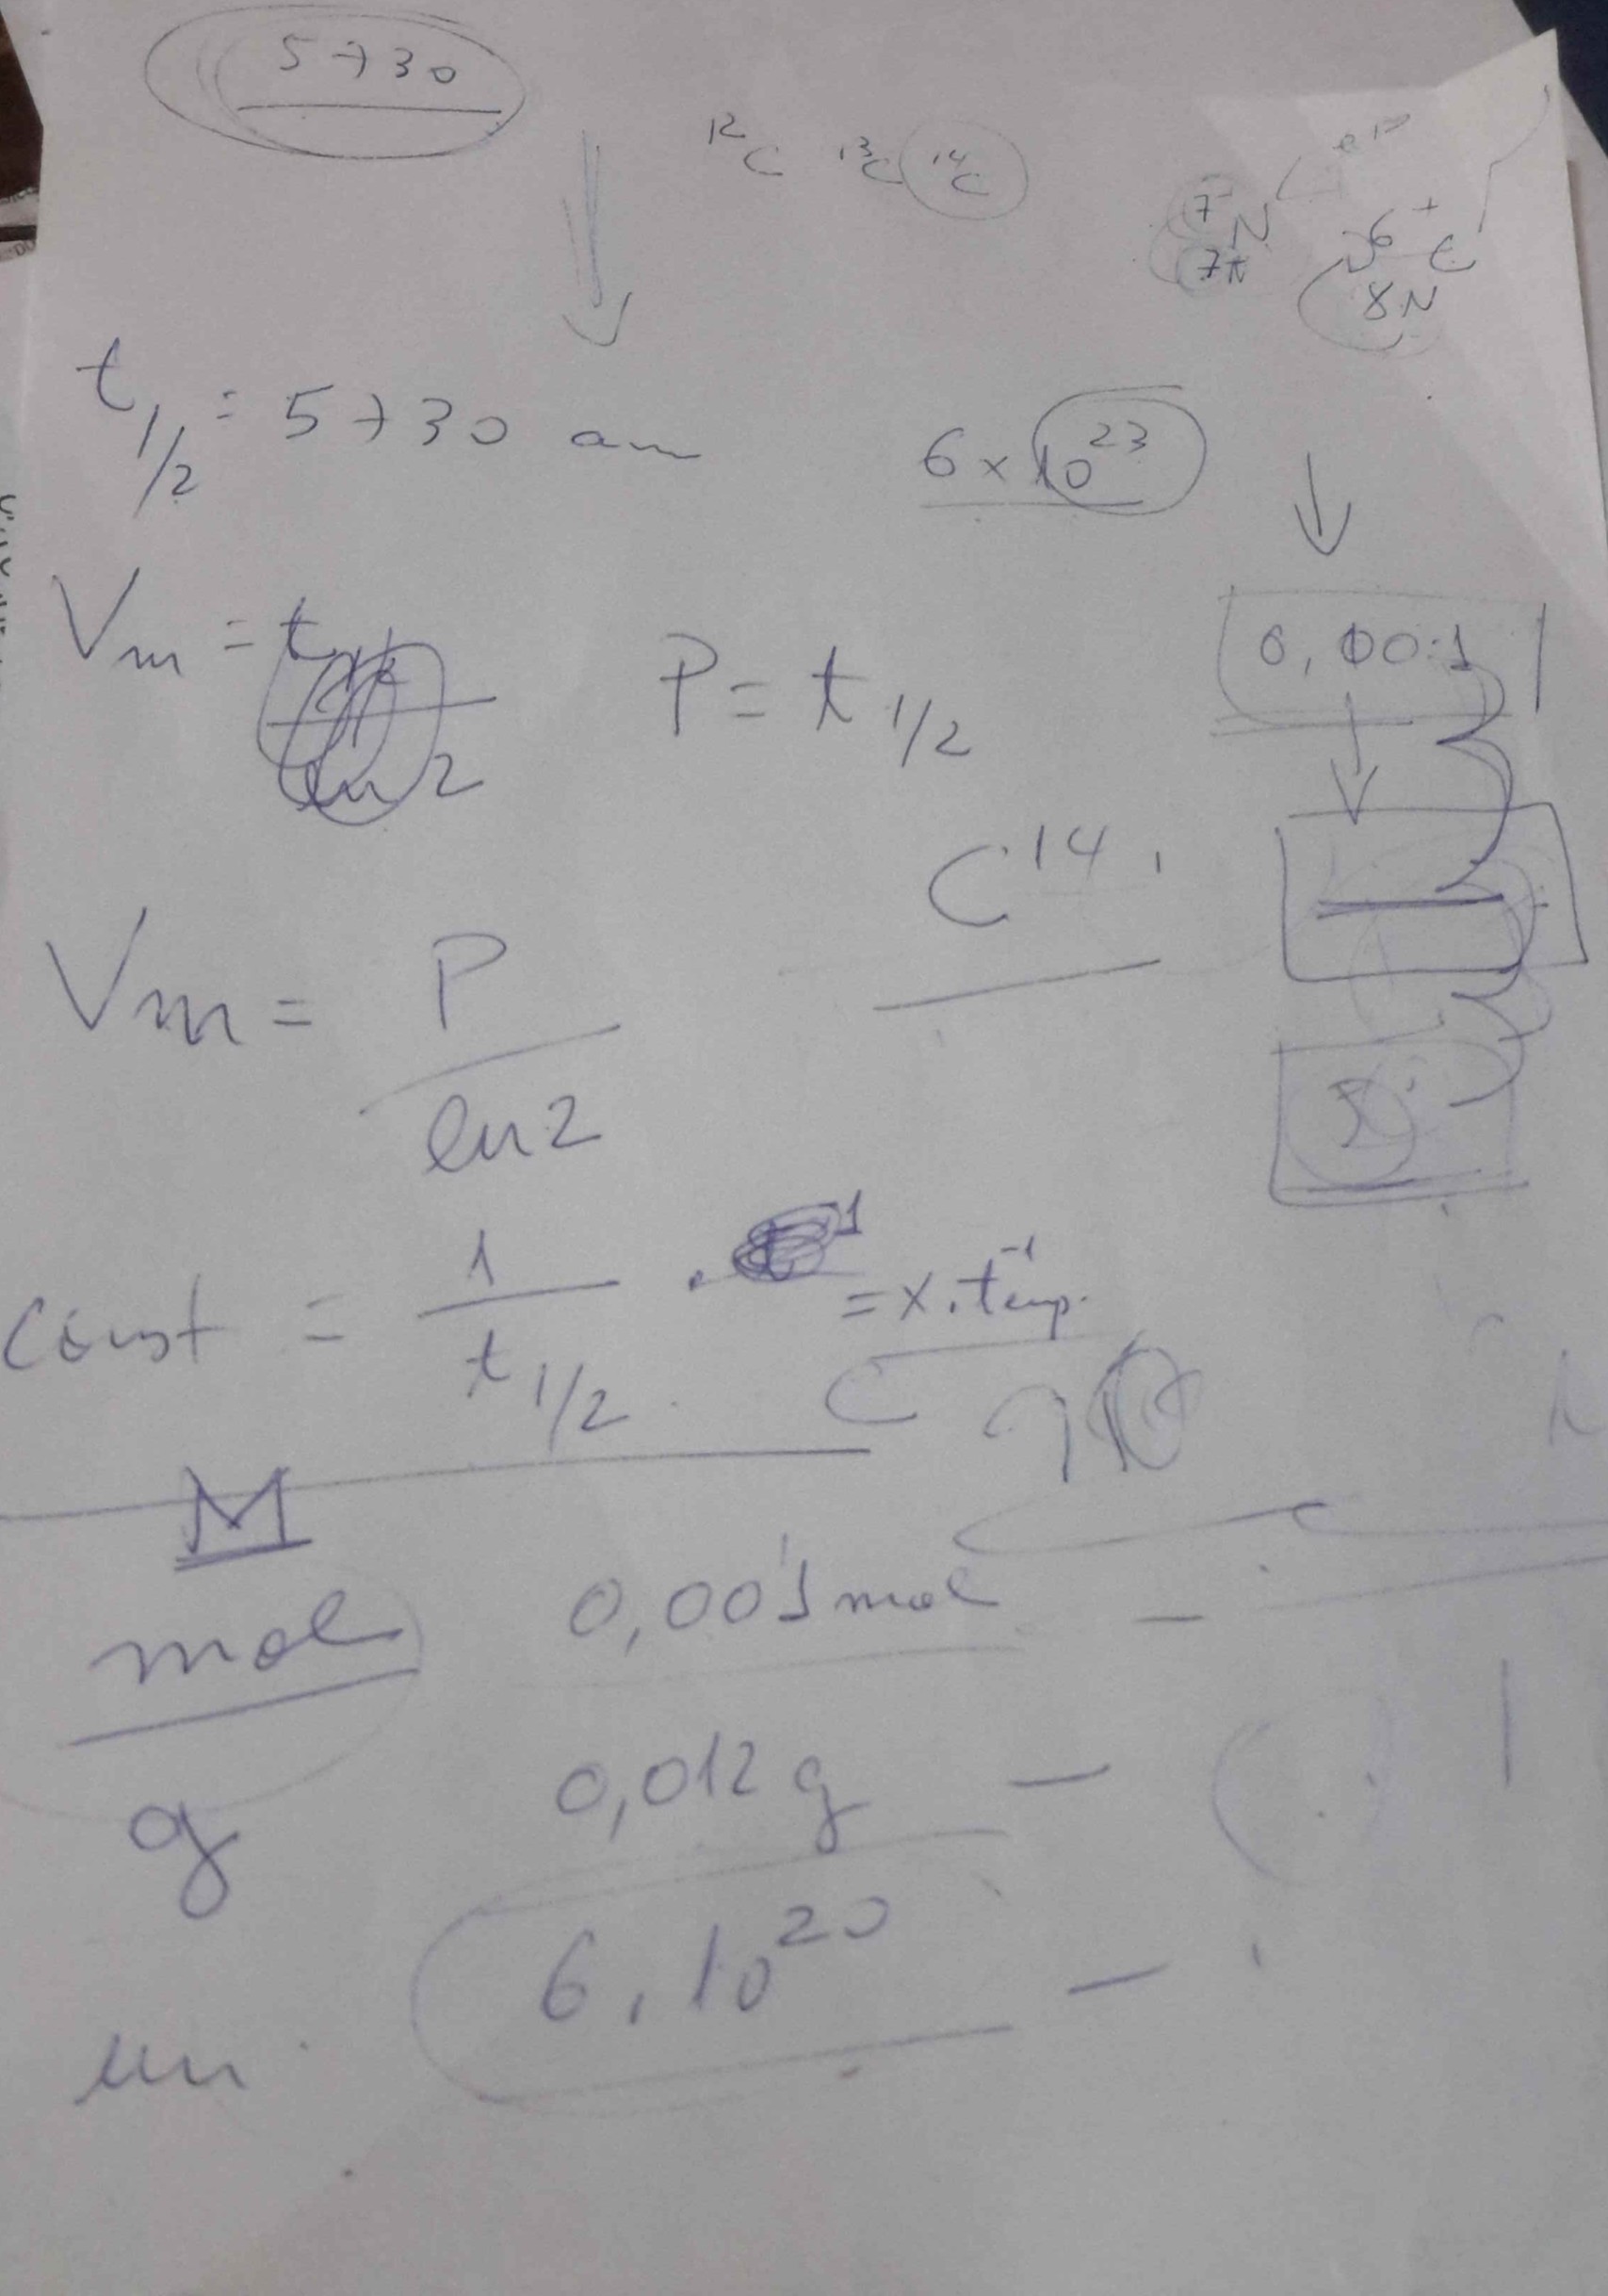 5730
12C 13C 14C
7 N
7N
6+ C
8N
t 1/2 = 5730
6 x 10^23
0,001
Vm = t 1/2
ln 2
P = t 1/2
C^14
Vm = P
ln 2
const = 1 / t 1/2 . = x . temp.^-1
M
mol 0,001 mol -
g 0,012 g -
6 . 10^20 -